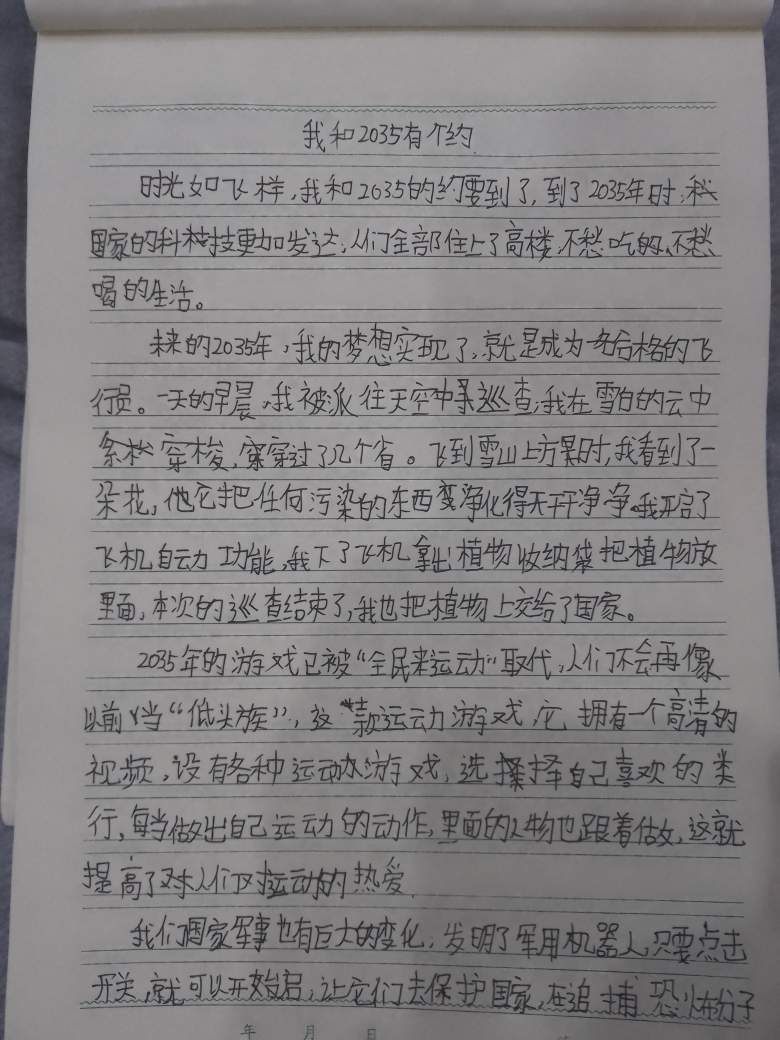 我和2035有个约
时光如飞样,我和2035的约要到了,到了2035年时,
国家的科技更加发达,人们全部住上了高楼,不愁吃的、不愁
喝的生活。
未来的2035年,我的梦想实现了,就是成为一名合格的飞
行员。一天的早晨,我被派往天空中巡查,我在雪白的云中
穿梭,穿过了几个省。飞到雪山上方时,我看到了一
朵花,它把任何污染的东西变净化得干干净净。我开启了
飞机自动功能,我下了飞机拿出植物收纳袋把植物放
里面,本次的巡查结束了,我也把植物上交给了国家。
2035年的游戏已被“全民来运动”取代,人们不会再像
以前当“低头族”,这款运动游戏,它拥有一个高清的
视频,设有各种运动游戏,选择自己喜欢的类
行,每当做出自己运动的动作,里面的人物也跟着做,这就
提高了人们对运动的热爱
我们国家军事也有巨大的变化,发明了军用机器人,只要点击
开关,就可以开始启,让它们去保护国家,在追捕恐怖分子
年 月 日